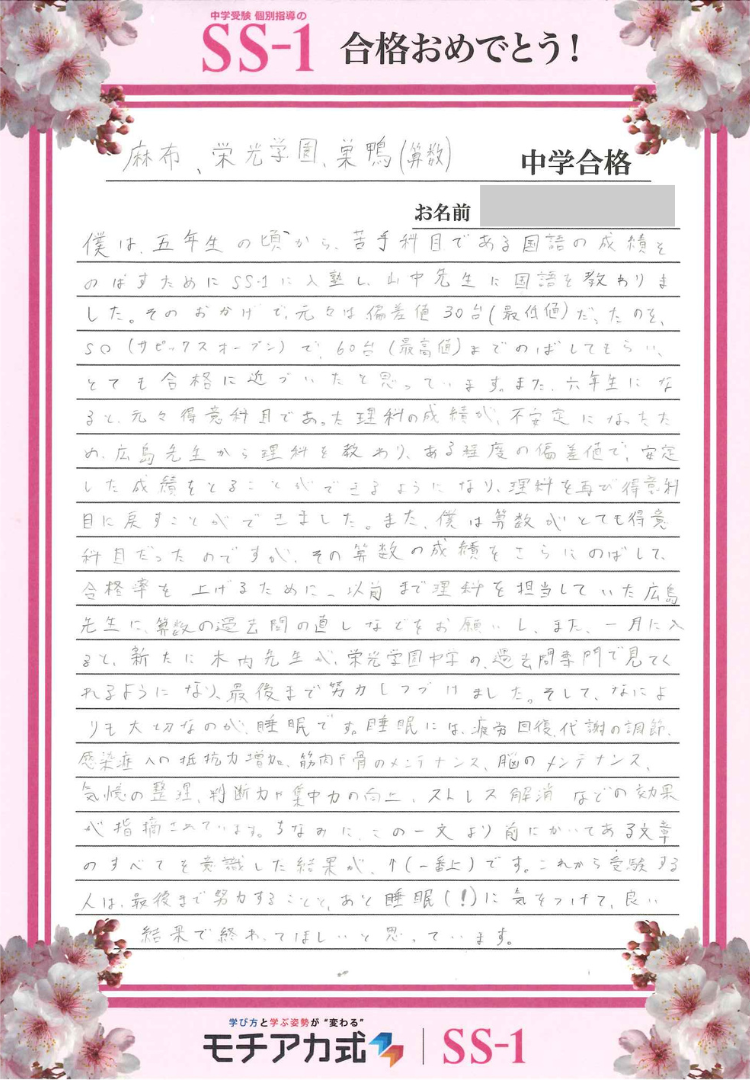 中学受験 個別指導の
SS-1 合格おめでとう!
麻布、栄光学園、巣鴨(算数) 中学合格
お名前
僕は、五年生の頃から、苦手科目である国語の成績を
のばすためにSS-1に入塾し、山中先生に国語を教わりま
した。そのおかげで、元々は偏差値30台(最低値)だったのを、
SO(サピックスオープン)で、60台(最高値)までのばしてもらい、
とても合格に近づいたと思っています。また、六年生にな
ると、元々得意科目であった理科の成績が、不安定になったた
め、広島先生から理科を教わり、ある程度の偏差値で、安定
した成績をとることができるようになり、理科を再び得意科
目に戻すことができました。また、僕は算数がとても得意
科目だったのですが、その算数の成績をさらにのばして、
合格率を上げるために、以前まで理科を担当していた広島
先生に、算数の過去問の直しなどをお願いし、また、一月に入
ると、新たに木内先生が、栄光学園中学の、過去問専門で見てく
れるようになり、最後まで努力しつづけました。そして、なによ
りも大切なのが、睡眠です。睡眠には、疲労回復、代謝の調節、
感染症への抵抗力増加、筋肉や骨のメンテナンス、脳のメンテナンス、
気憶の整理、判断力や集中力の向上、ストレス解消などの効果
が指摘されています。ちなみに、この一文より前にかいてある文章
のすべてを意識した結果が、↑(一番上)です。これから受験する
人は、最後まで努力することと、あと睡眠(!)に気をつけて、良い
結果で終わってほしいと思っています。
学び方と学ぶ姿勢が“変わる”
モチアカ式 SS-1